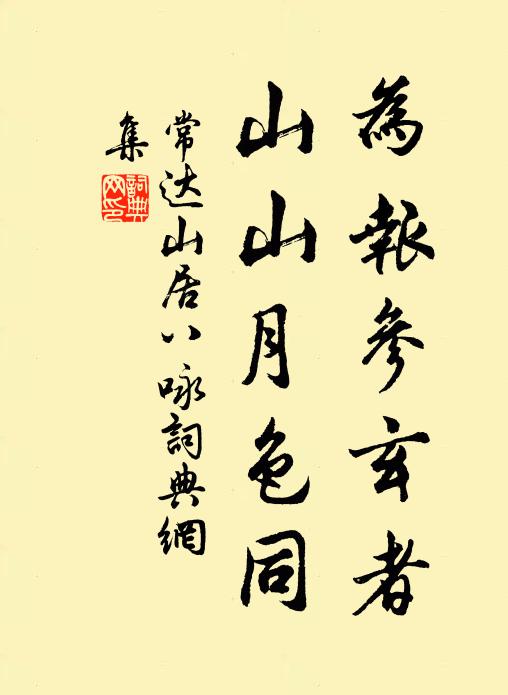 為報參玄者
山山月色同
常达山居八咏詞典網
集
詞典
网印